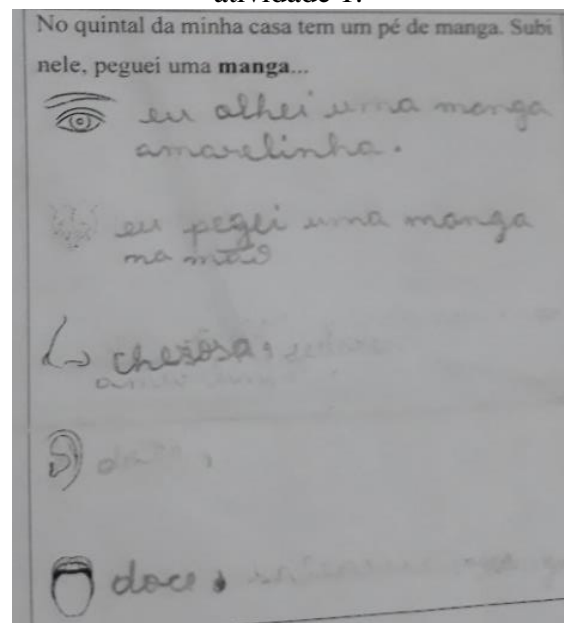 atividade 1.
No quintal da minha casa tem um pé de manga. Subi
nele, peguei uma manga...
eu olhei uma manga
amarelinha.
eu pegei uma manga
na mão
cherosa,
doce,
doce,